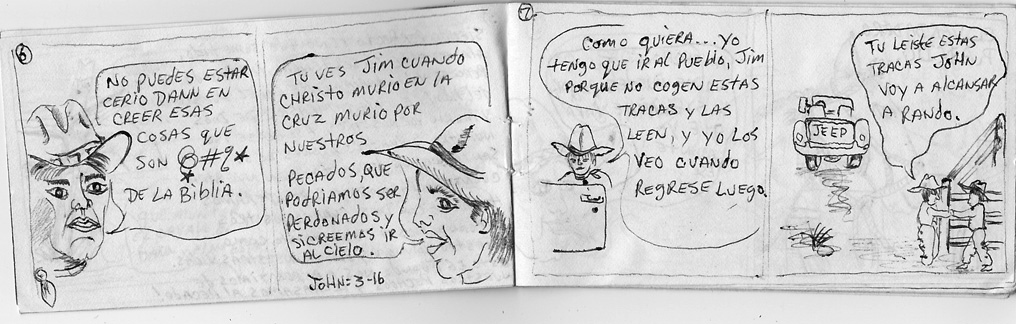 6
NO PUEDES ESTAR
CERIO DANN EN
CREER ESAS
COSAS QUE
SON @#?*
*
DE LA BIBLIA.
TU VES JIM CUANDO
CHRISTO MURIO EN LA
CRUZ MURIO POR
NUESTROS
PECADOS, QUE
PODRIAMOS SER
PERDONADOS Y
SI CREEMOS IR
AL CIELO.
JOHN=3-16
7
COMO QUIERA...YO
TENGO QUE IR AL PUEBLO, JIM
PORQUE NO COGEN ESTAS
TRACAS Y LAS
LEEN, Y YO LOS
VEO CUANDO
REGRESE LUEGO.
JEEP
TU LEISTE ESTAS
TRACAS JOHN
VOY A ALCANSAR
A RANDO.